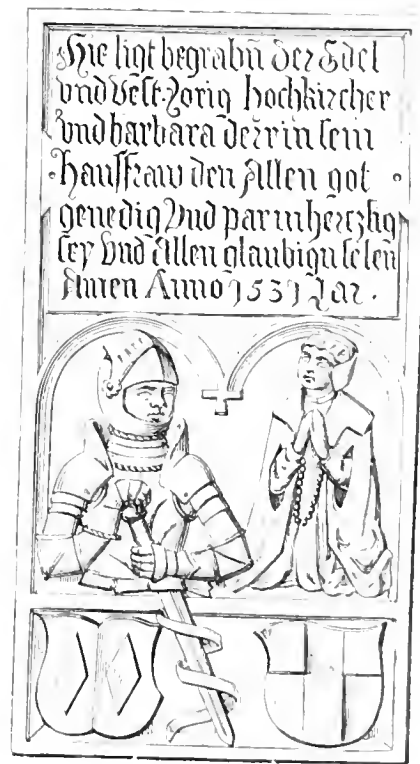 Hie ligt begrabñ der Edel
vnd Vest Jorig hochkircher
vnd barbara derrin sein
Hausfraw den Allen got
genedig Vnd parmhertzhig
sey Vnd Allen glaubign selen
Amen Anno 1531 Jar .